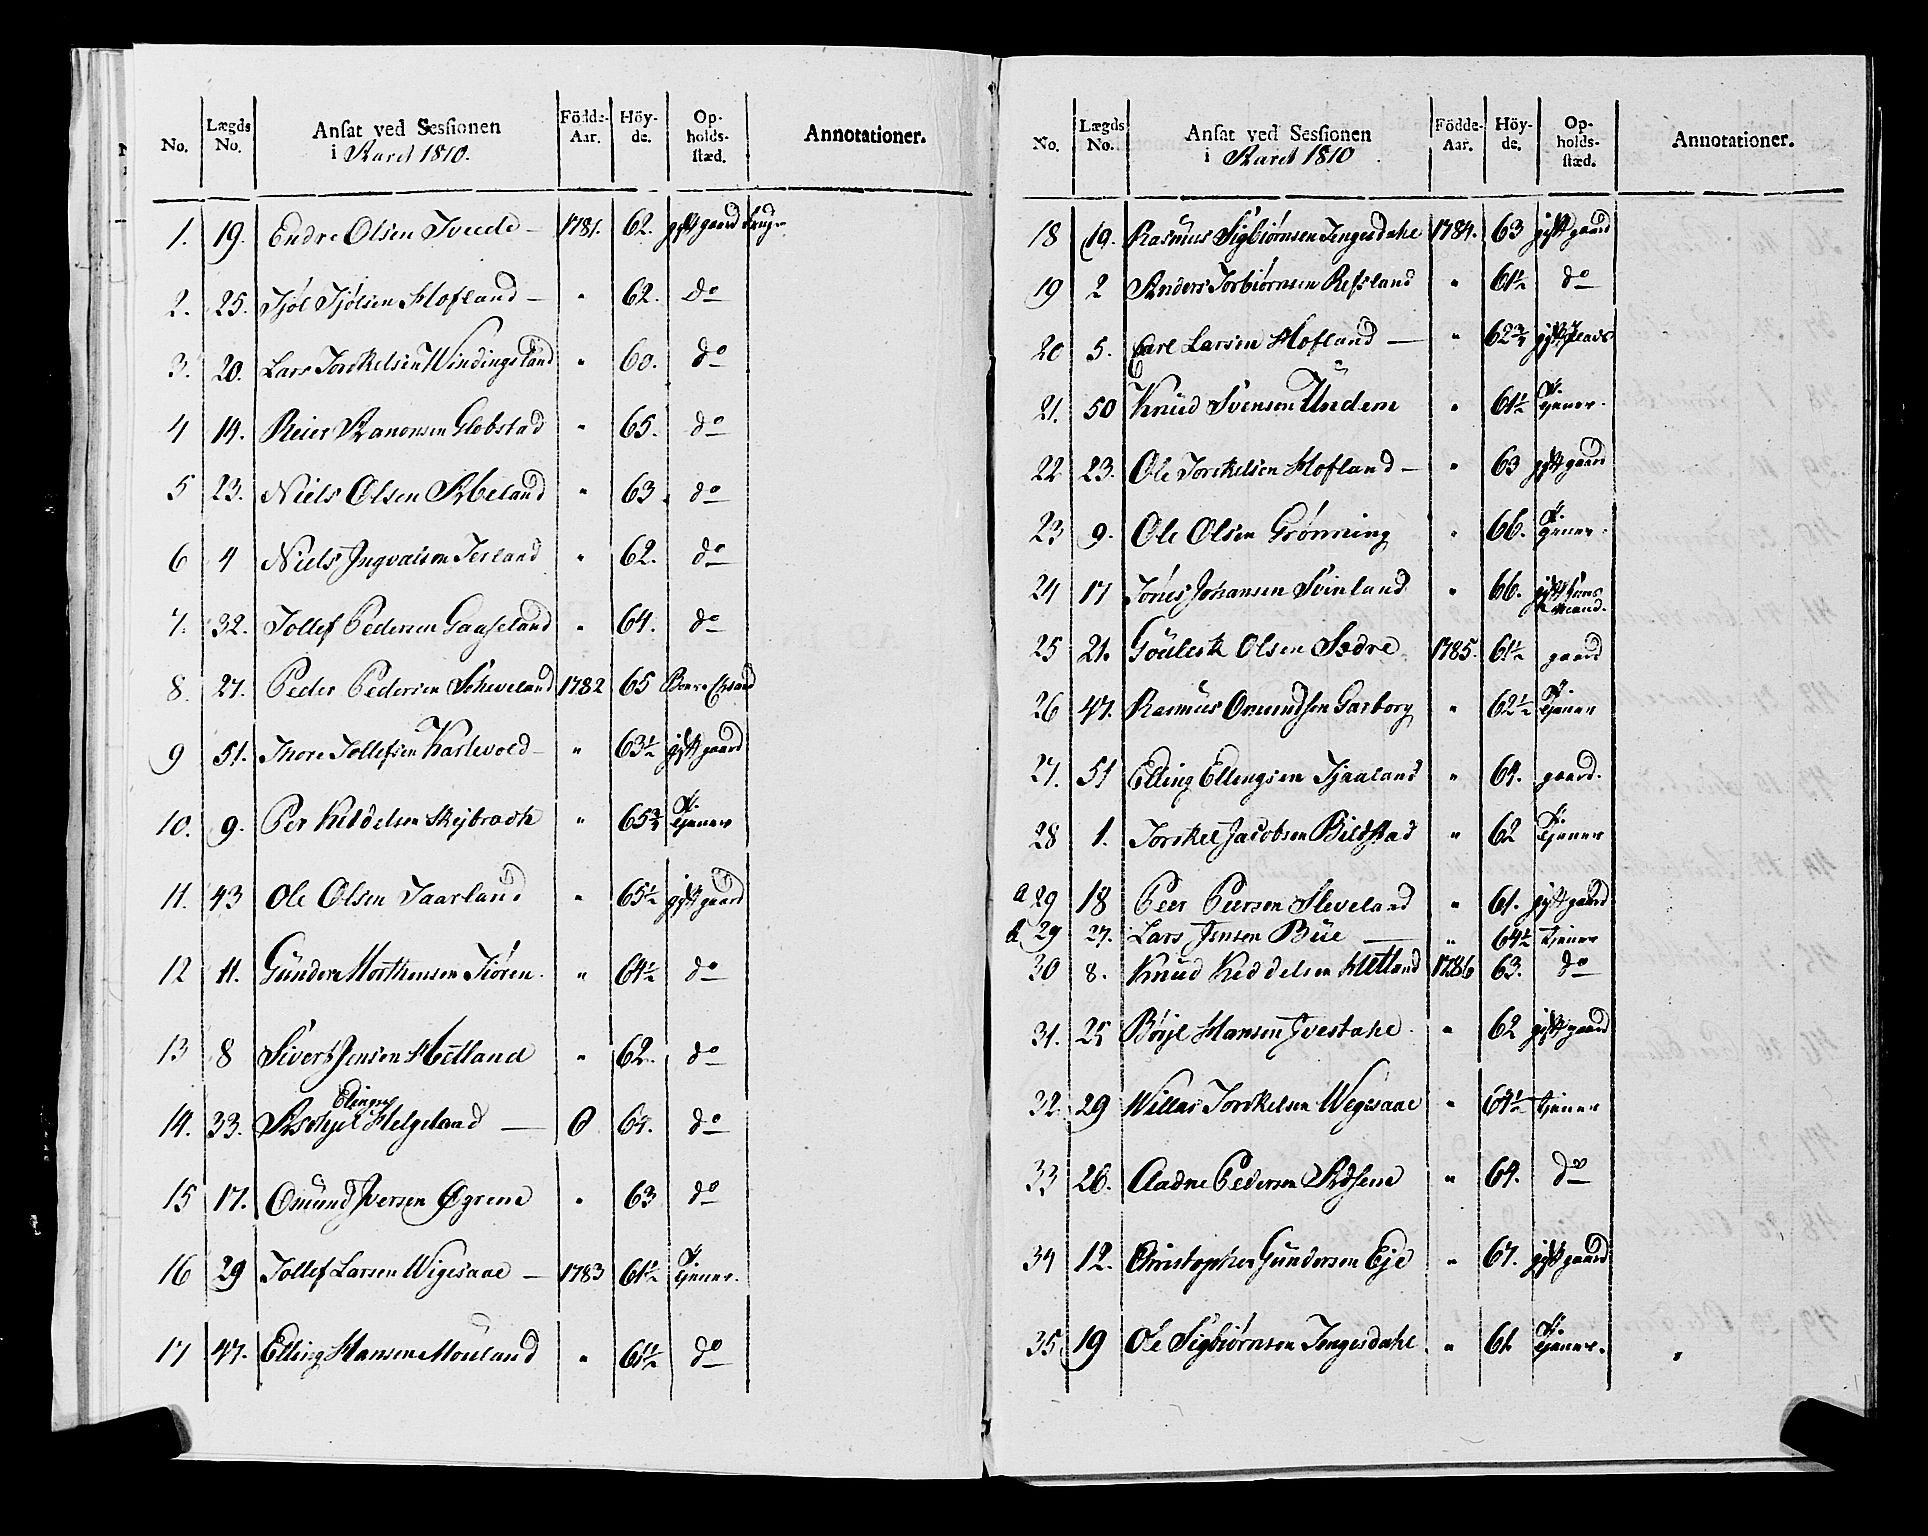 No. Lægds No. Ansat ved Sessionen i Aaret 1810. Födde-Aar. Höy-de. Op-holds-stæd. Annotationer.
1. 19. Endre Olsen Tveede - 1781. 62. gift gaard brugr
2. 25. Tjøl Tjølsen Hofland - " 62. do
3. 20. Lars Torkelsen Windingsland " 60. do
4 14. Reier Aanonsen Globstad " 65. do
5 23. Niels Olsen Abeland " 63. do
6 4 Niels Ingvalsen Jerland " 62. do
7. 32. Tollef Pedersen Gaaseland " 64. do
8. 27. Peder Pedersen Scheveland 1782 65
9 51. Thore Tollefsen Karlevold - " 63½ gift gaard
10. 9. Per Keddelsen Skejbrech " 65¾ Tjener
11. 43 Ole Olsen Taarland " 65½ gift gaard
12 11. Gunder Morthensen Tiøren. " 64½ do
13 8 Sivert Jensen Hetland " 62. do
14. 33. Aschjel Elingsen Helgeland - O 64. do
15 17. Omund Iversen Øgrene " 63 do
16 29 Tollef Larsen Wigesaae - 1783 61½ Tjener.
17 47. Elling Hansen Mouland " 61½ do
No. Lægds No. Ansat ved Sessionen i Aaret 1810 Födde-Aar. Höy-de. Op-holds-stæd. Annotationer.
18 19. Rasmus Sigbiørnsen Tengesdahl 1784. 63 gift gaard
19 2 Anders Torbiørnsen Refsland " 61½ do
20 5. Carl Larsen Hofland - " 62¾ gift plads
21. 50 Knud Svensen Undem " 61½ Tjener.
22 23. Ole Torkelsen Hofland - " 63 gift gaard
23 9. Ole Olsen Grønning " 66. Tjener.
24 17 Tønes Johansen Svinland " 66. gift huusmand.
25 21. Goulech Olsen Sædre 1785. 61½ gaard
26 47. Rasmus Omundsen Garborg " 62½ Tjener
27. 51 Elling Ellingsen Tjaaland " 64. gaard.
28 1. Torkel Jacobsen Bildstad " 62 Tjener
a 29 18 Peer Peersen Sleveland " 61. gift gaard
b 29 27. Lars Jensen Büe - " 64½ tjener
30 8. Knud Keddelsen Hetland 1786 63. do
31. 25 Børge Hansen Tvestahl " 62 gift gaard
32. 29 Willas Torkelsen Wegesaae " 64½ tjener
33 26. Aadne Pedersen Aasene " 64. do
34 12. Christopher Gundersen Eje " 67. gift gaard
35 19 Ole Sigbiørnsen Tengesdahl " 61 Tjener.